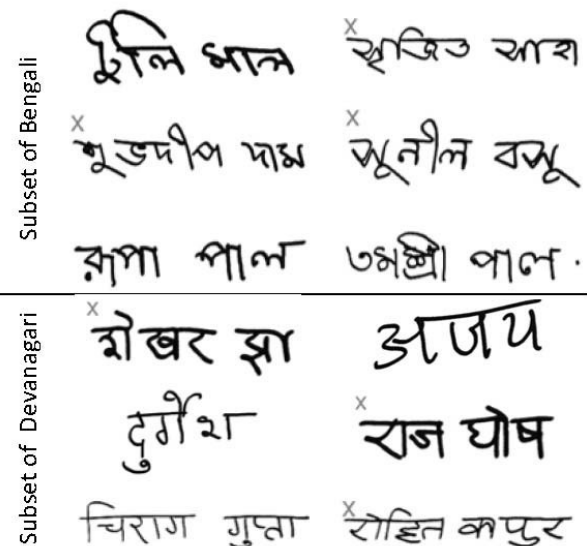 Subset of Bengali
টুলি মাল
x সৃজিত সাহা
x শুভদীপ দাস
x সুনীল বসু
রূপা পাল
তমশ্রী পাল .
Subset of Devanagari
x शेखर झा
अजय
दुर्गेश
x राज घोष
चिराग गुप्ता
x रोहित कपुर